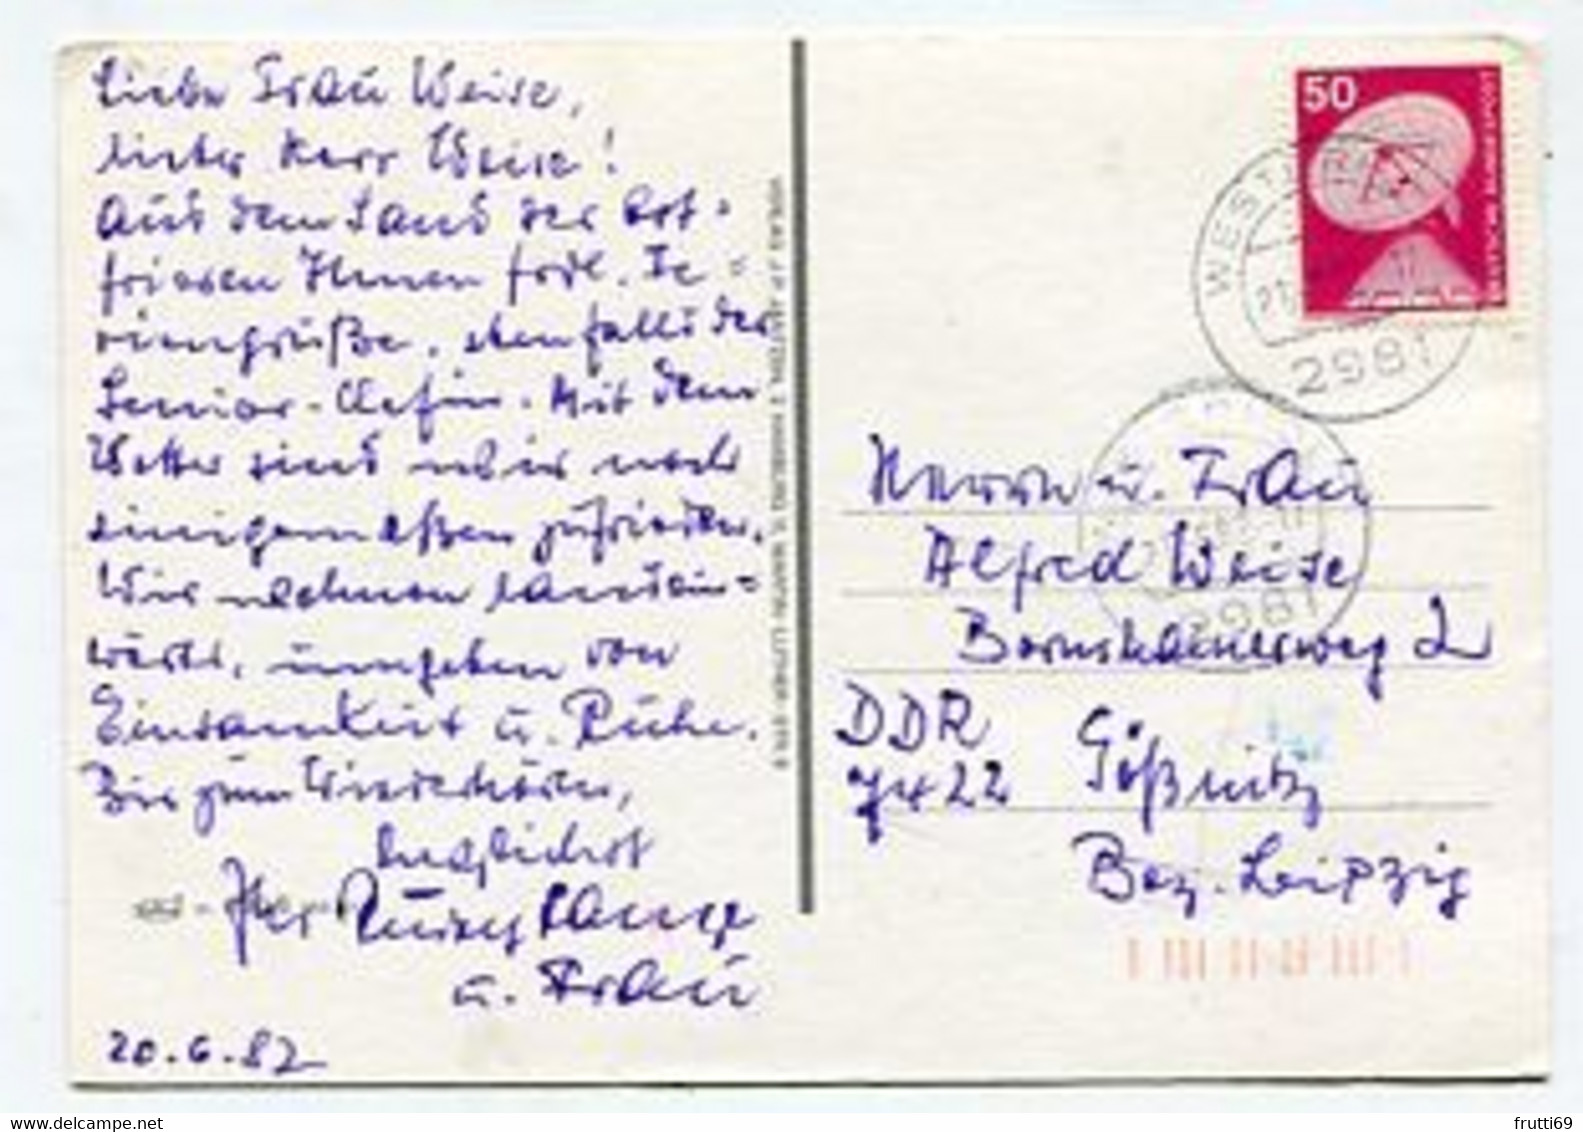 Liebe Frau Weise,
lieber Herr Weise!
Aus dem Land der Ost-
friesen Ihnen frdl. Fe=
riengrüße, ebenfalls der
Senior-Chefin. Mit dem
Wetter sind wir noch
einigermaßen zufrieden.
Wir wohnen landein=
wärts, umgeben von
Einsamkeit u. Ruhe.
Bis zum Wiederhören,
Ihr Lange
u. Frau
20.6.82
50
DEUTSCHE BUNDESPOST
2981
2981
Herrn u. Frau
Alfred Weise
2
DDR Gößnitz
7422
Bez. Leipzig
www.delcampe.net
frutti69